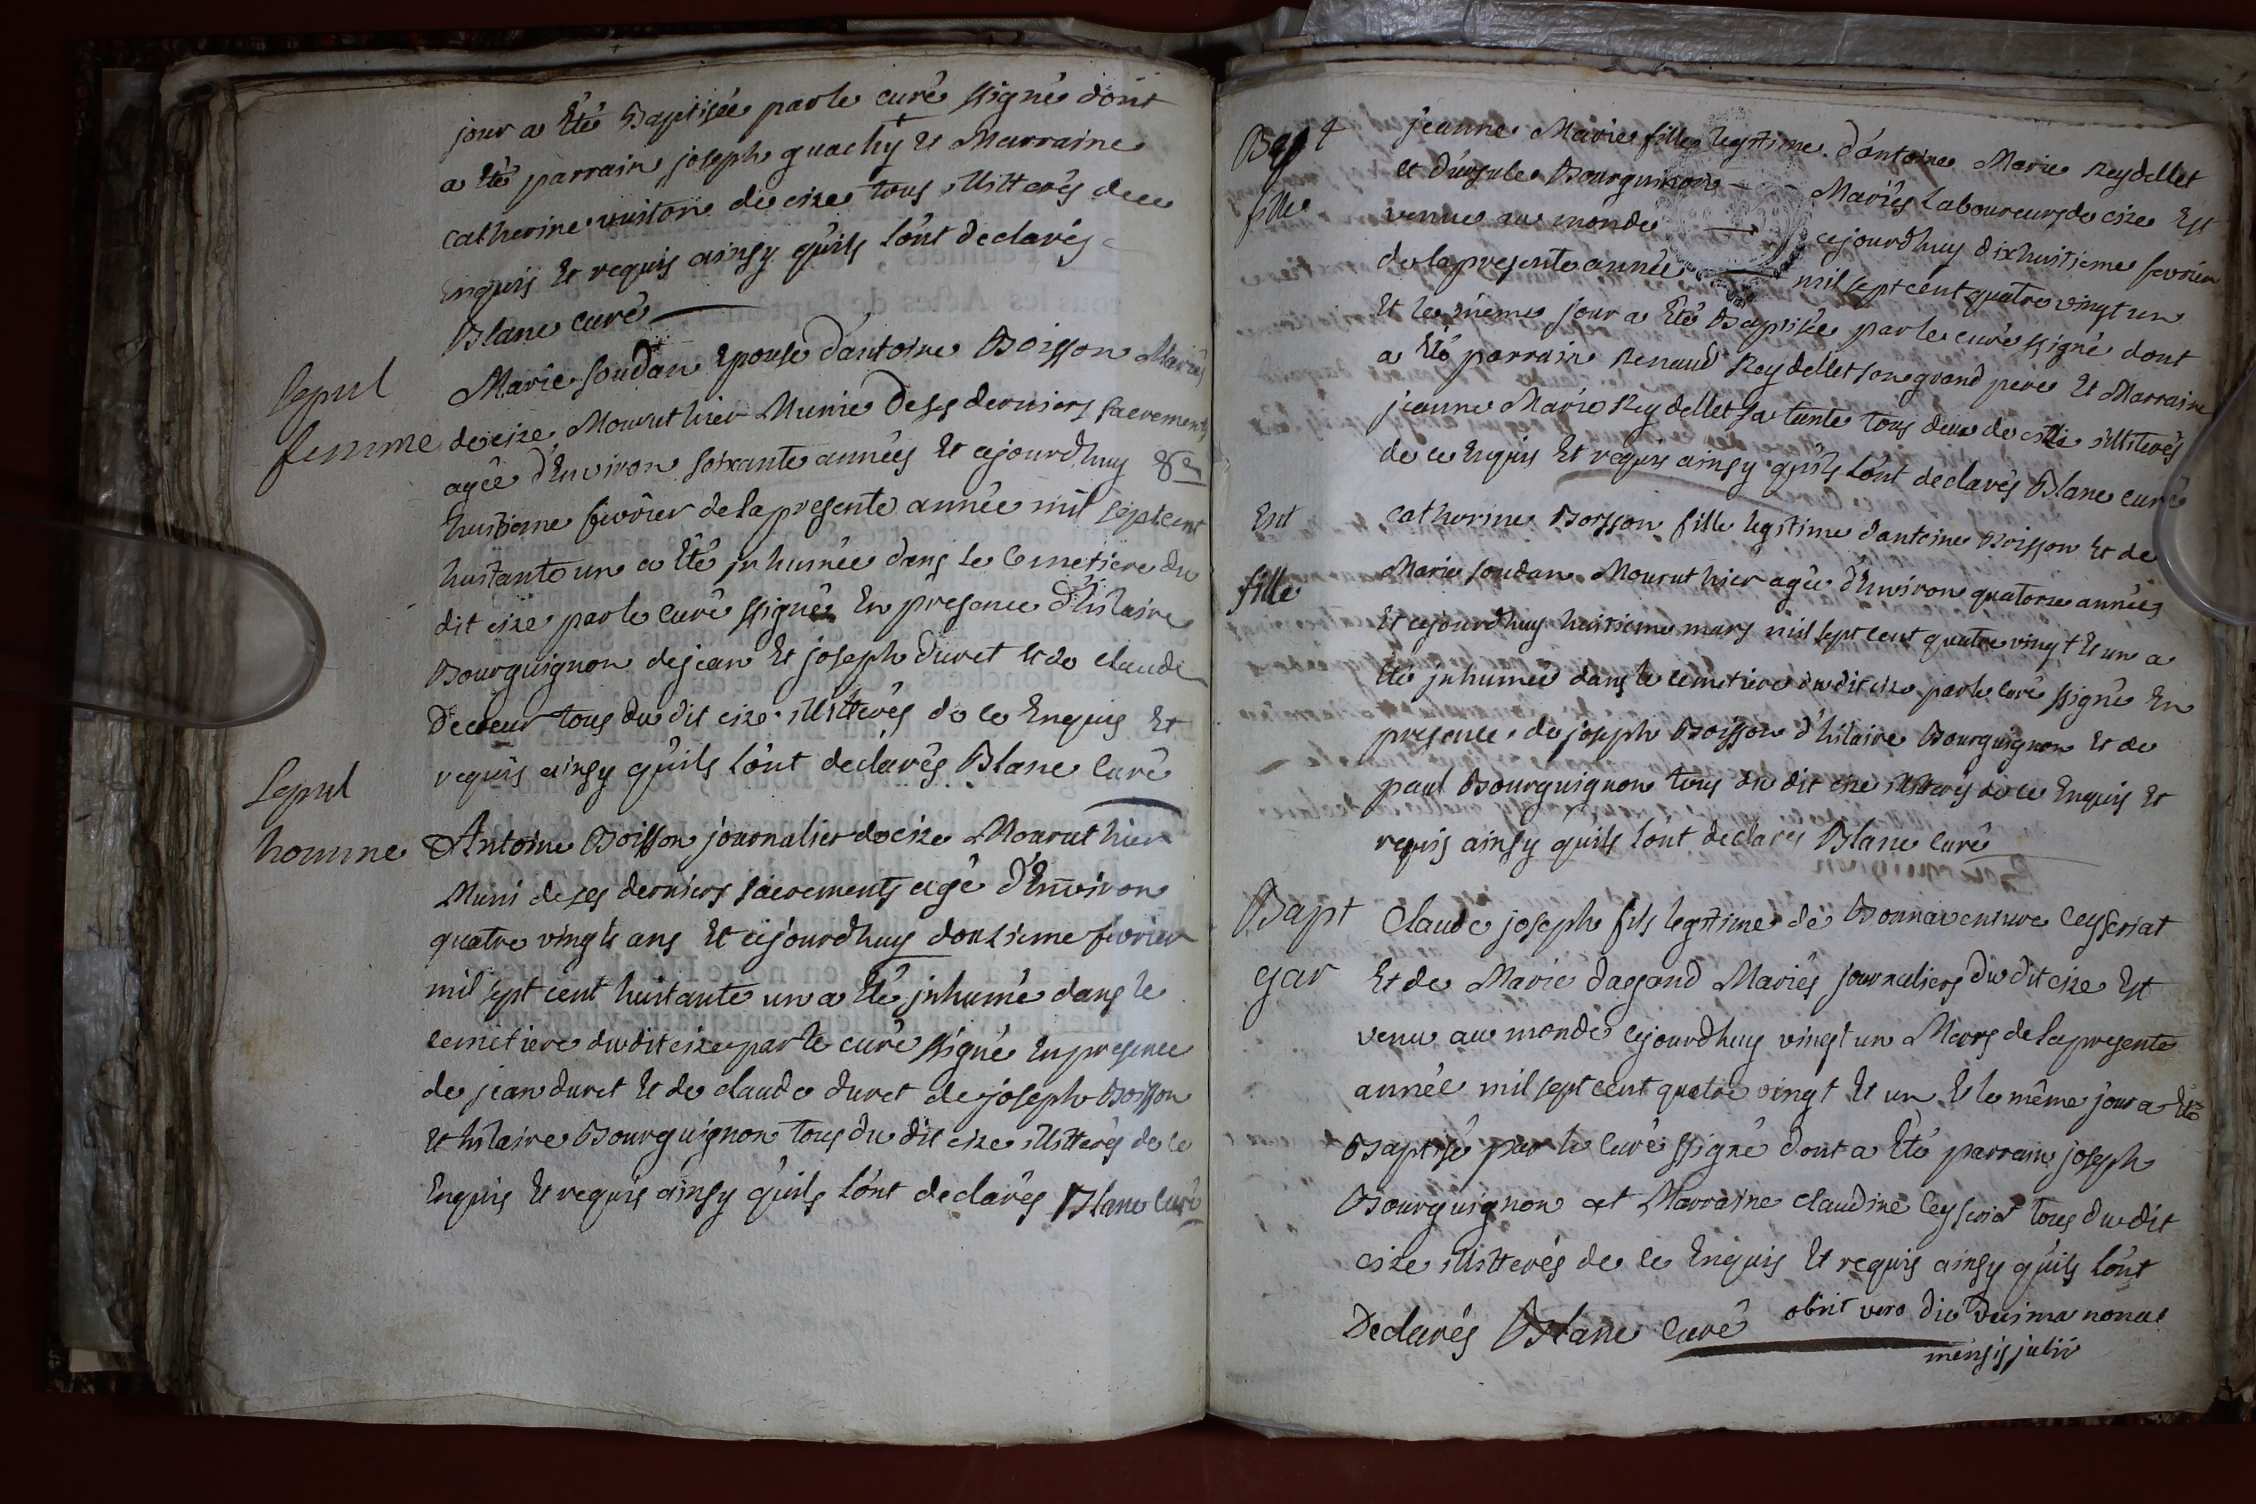 jour a Eté Baptisée par le curé ssigné dont
a Eté parrain joseph guachy Et Marraine
catherine vuiton de cize tous illitterés de ce
Enquis Et requis ainsy quils lont declarés
Blanc curé
Sepul
femme
Marie soudan Epouse d'antoine Boisson Mariés
de cize Mourut hier Munie De ses derniers sacrements
agée d'Environ soixante années Et cejourdhuy 8e
huitieme fevrier de la presente année mil septcent
huitante un a Eté inhumée dans le Cemetiere du
dit cize par le curé ssigné En presence d'hilaire
Bourguignon de jean Et joseph duret Et de claude
Decoeur tous du dit cize illitterés de ce Enquis Et
requis ainsy quils lont declarés Blanc Curé
Sepul
homme
Antoine Boisson journalier de cize Mourut hier
Muni de ses derniers sacrements agé d'Environ
quatre vingts ans Et cejourdhuy douzieme fevrier
mil sept cent huitante un a Eté inhumé dans le
cemetiere du dit cize par le curé ssigné En presence
de jean duret Et de claude duret de joseph Boisson
Et hilaire Bourguignon tous du dit cize illitterés de ce
Enquis Et requis ainsy quils lont declarés Blanc Curé
Bap 4
fille
jeanne Marie fille legitime d'antoine Marie Reydellet
et d'ursule Bourguinon Mariés Laboureurs de cize Est
venue au monde cejourdhuy dixhuitieme fevrier
de la presente année mil sept cent quatre vingt un
Et le même jour a Eté Baptisée par le curé ssigné dont
a Eté parrain Renaud Reydellet son grand pere Et Marraine
jeanne Marie Reydellet sa tante tous deux de cize illiterés
de ce Enquis Et requis ainsy quils lont declarés Blanc curé
Ent
fille
catherine Boisson fille legitime d'antoine Boisson Et de
Marie soudan Mourut hier agée d'Environ quatorze années
Et cejourdhuy huitieme mars mil sept cent quatre vingt Et un a
Eté inhumée dans le cemetiere du dit cize par le curé ssigné En
presence de joseph Boisson d'hilaire Bourguignon Et de
paul Bourguignon tous du dit cize illitterés de ce Enquis Et
requis ainsy quils lont declarés Blanc Curé
Bapt
gar
Claude joseph fils legitime de Bonnaventure Ceyseriat
Et de Marie dagand Mariés journaliers du dit cize Est
venu au monde cejourdhuy vingt un Mars de la presente
année mil sept cent quatre vingt Et un Et le même jour a Eté
Baptisé par le Curé ssigné dont a Eté parrain joseph
Bourguignon et Marraine claudine Ceyseriat tous du dit
cize illitterés de ce Enquis Et requis ainsy quils lont
Declarés Blanc Curé obiit vero die decima nona
mensis julii